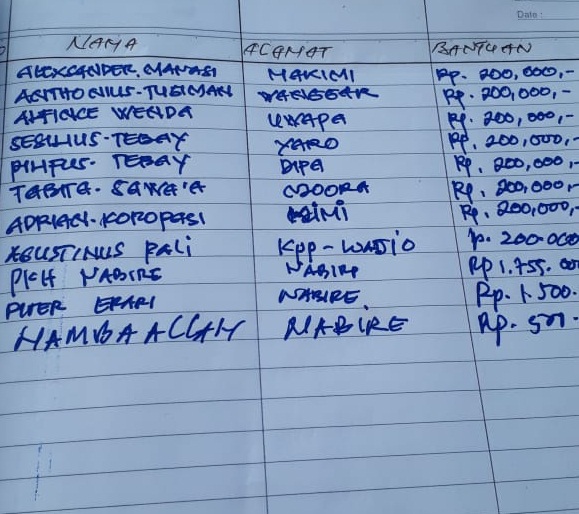 Date :
NAMA ALAMAT BANTUAN
ALEXSANDER. MANASI MAKIMI Rp. 200,000,-
AGITHONIUS-TUGIMAN WANGGAR Rp. 200,000,-
ALFINCE WENDA UWAPA Rp. 200,000,-
SESILIUS-TEBAY YARO Rp. 200,000,-
PIHFUS- TEBAY DIPA Rp. 200,000,-
TABITA- SAWA'A Rp. 200,000,-
ADRIAN-KOROPASI Rp. 200,000,-
AGUSTINUS BALI Kpp-WADIO p. 200.000
PKH NABIRE NABIRE Rp 1.755.000
PITER ERARI NABIRE. Rp. 1.500.
HAMBA ALLAH NABIRE Rp. 500.